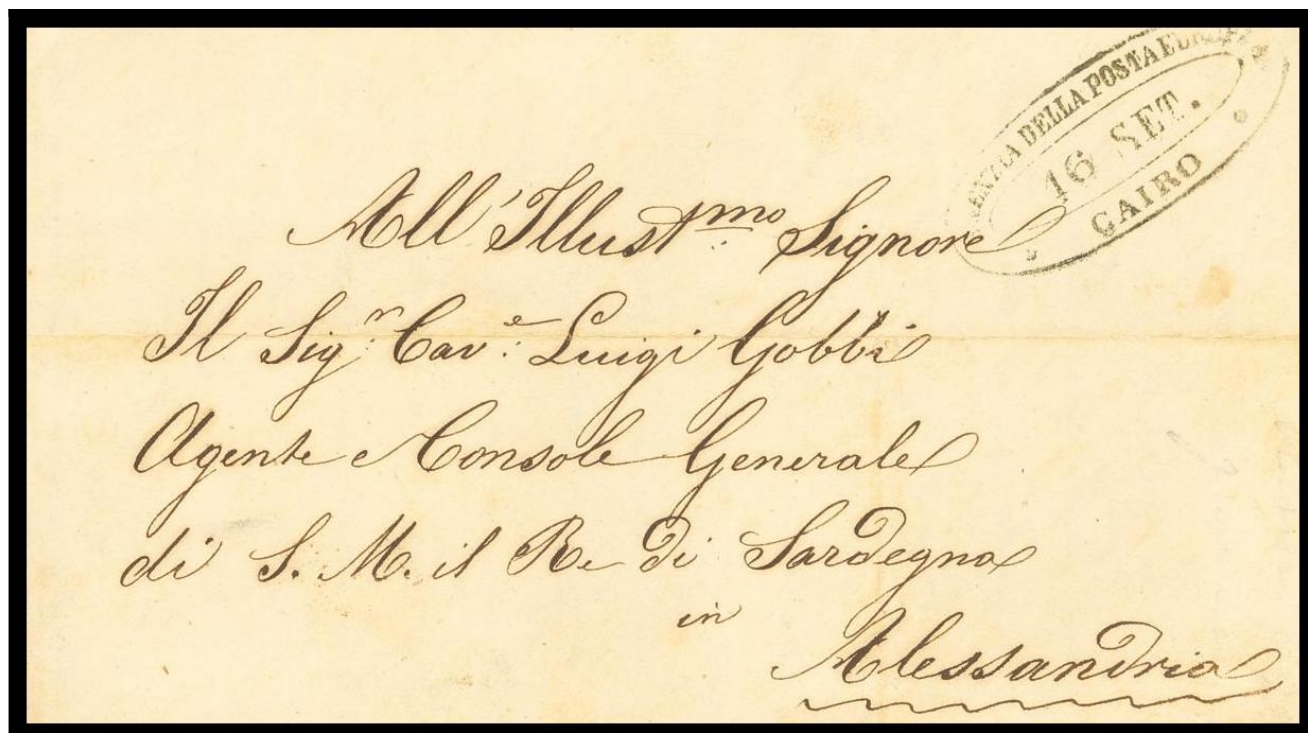 DELLA POSTA
16 SET.
CAIRO
All' Illust.mo Signore
Il Sig.n Cav.e Luigi Gobbi
Agente e Console Generale
di S. M. il Re di Sardegna
in
Alessandria